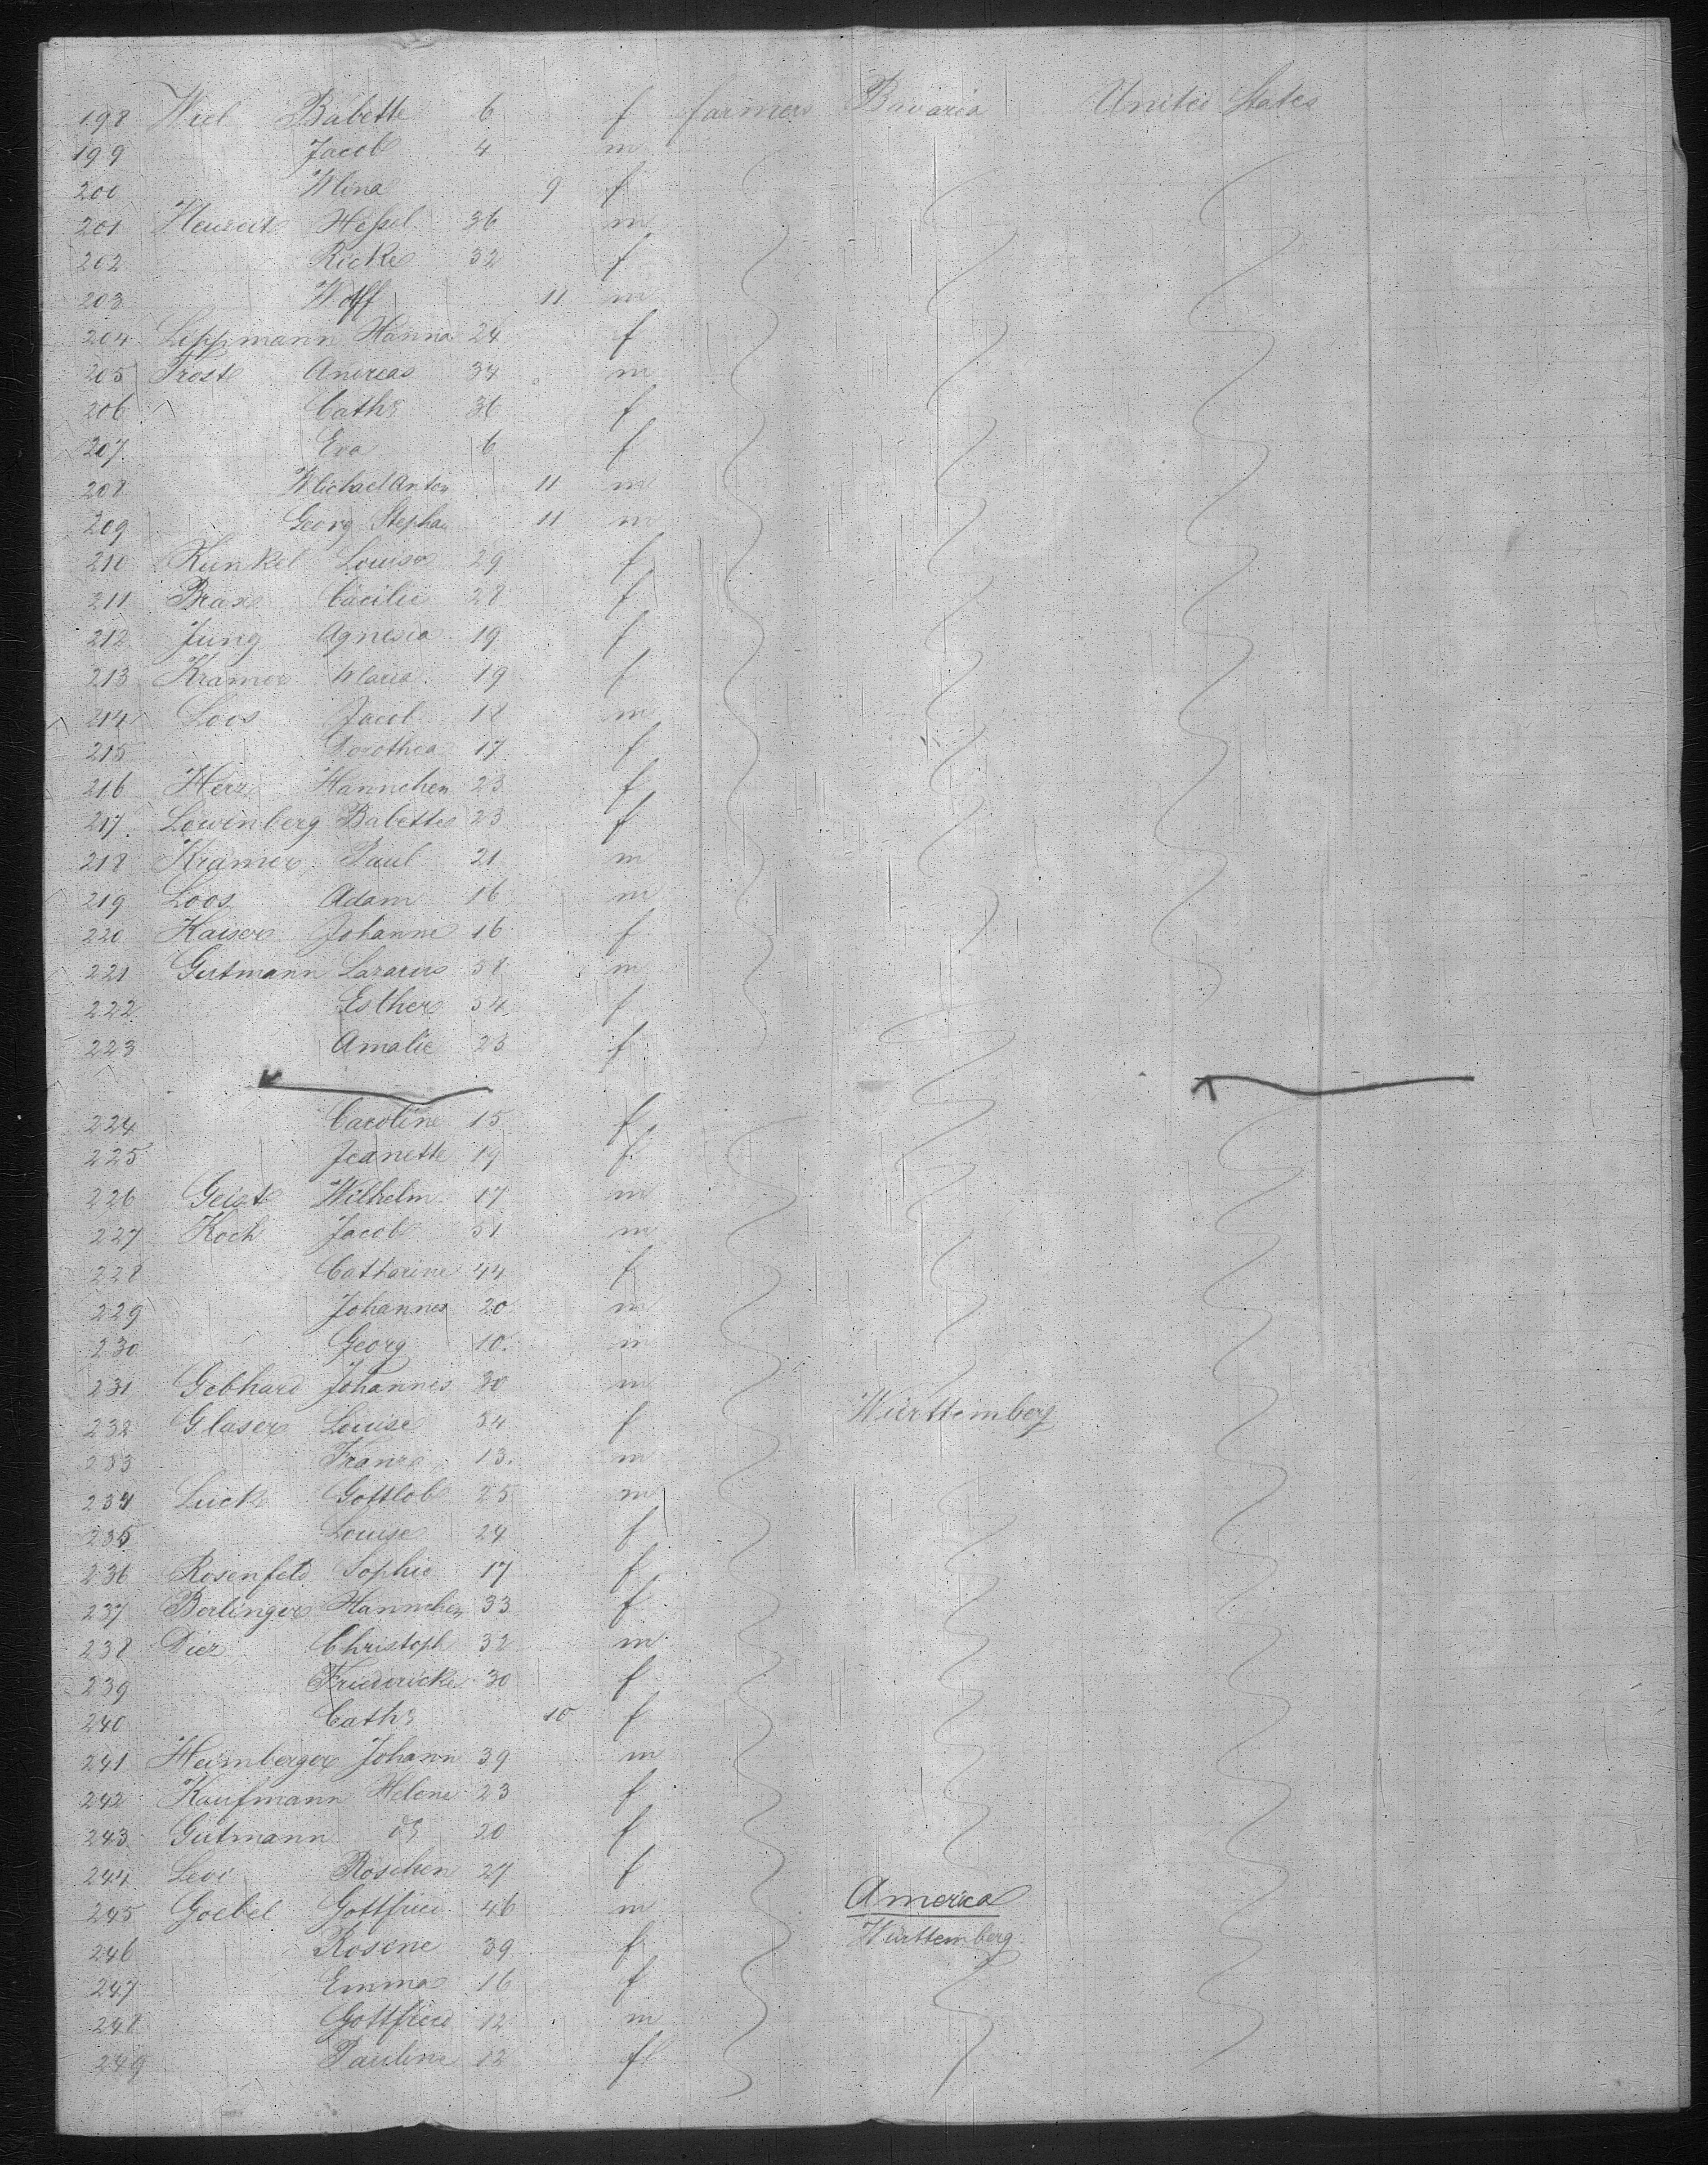 198 Wiel Babette 6 f farmers Bavaria United States
199 Jacob 4 m
200 Mina 9 f
201 Hessel 36 m
202 Ricke 32 f
203 Wolff 11 m
204 Lippmann Hanna 24 f
205 Trost Andreas 34 m
206 Cath. 36 f
207 Eva 6 f
208 Michael Anton 11 m
209 Georg Stephan 11 m
210 Kunkel Louise 29 f
211 Brax Cäcilie 28 f
212 Jung Agnesia 19 f
213 Kramer Maria 19 f
214 Loos Jacob 18 m
215 Dorothea 17 f
216 Herz Hannchen 23 f
217 Löwinberg Babette 23 f
218 Kramer Paul 21 m
219 Loos Adam 16 m
220 Kaiser Johanne 16 f
221 Gutmann Lazarus 58 m
222 Esther 54 f
223 Amalie 23 f
224 Caroline 15 f
225 Jeanette 19 f
226 Geist Wilhelm 17 m
227 Koch Jacob 51 m
228 Catharine 44 f
229 Johannes 20 m
230 Georg 10 m
231 Gebhard Johannes 30 m
232 Glaser Louise 54 f Württemberg
233 Franz 13 m
234 Luck Gottlob 25 m
235 Louise 24 f
236 Rosenfeld Sophie 17 f
237 Berlinger Hannchen 33 f
238 Dier Christoph 32 m
239 Friedericke 30 f
240 Cath. 10 f
241 Heimberger Johann 39 m
242 Kaufmann Helene 23 f
243 Gutmann do 20 f
244 Levi Röschen 27 f
245 Goebel Gottfried 46 m America
246 Rosine 39 f Württemberg
247 Emma 16 f
248 Gottfried 12 m
249 Pauline 12 f